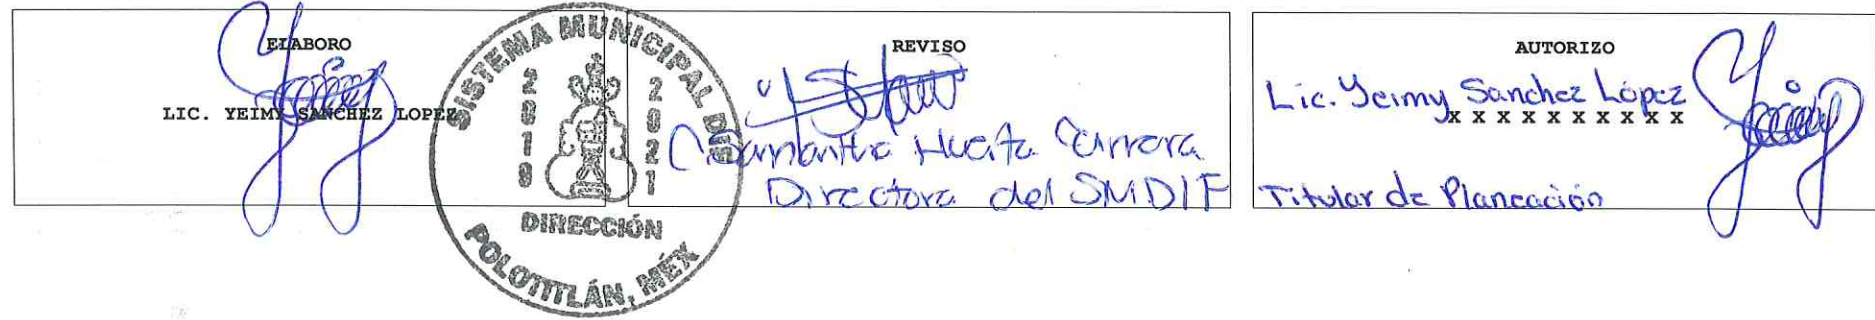 ELABORO
LIC. YEIMY SANCHEZ LOPEZ
SISTEMA MUNICIPAL DIF
2019
2021
DIRECCIÓN
POLOTITLÁN, MÉX
REVISO
Samantha Huitz Carrera
Directora del SMDIF
AUTORIZO
Lic. Yeimy Sanchez López
X X X X X X X X X X
Titular de Planeación